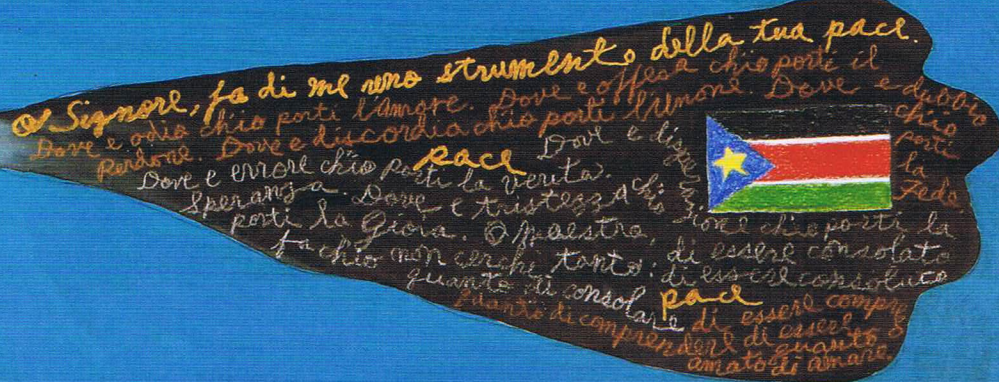 O Signore, fa di me uno strumento della tua pace.
Dove e odio chio porti l'Amore. Dove e offesa chio porti il
Perdono. Dove e discordia chio porti l'Unione. Dove e dubbio
chio
porti
la
Fede.
pace
Dove e errore chio porti la verita. Dove e dispe
razione chio porti la
Speranza. Dove e tristezza chio
porti la Gioia. O Maestro,
fa chio non cerchi tanto: di essere consolato
quanto di consolare
pace
di essere compre
quanto di comprendere di essere
amato quanto
di amare.